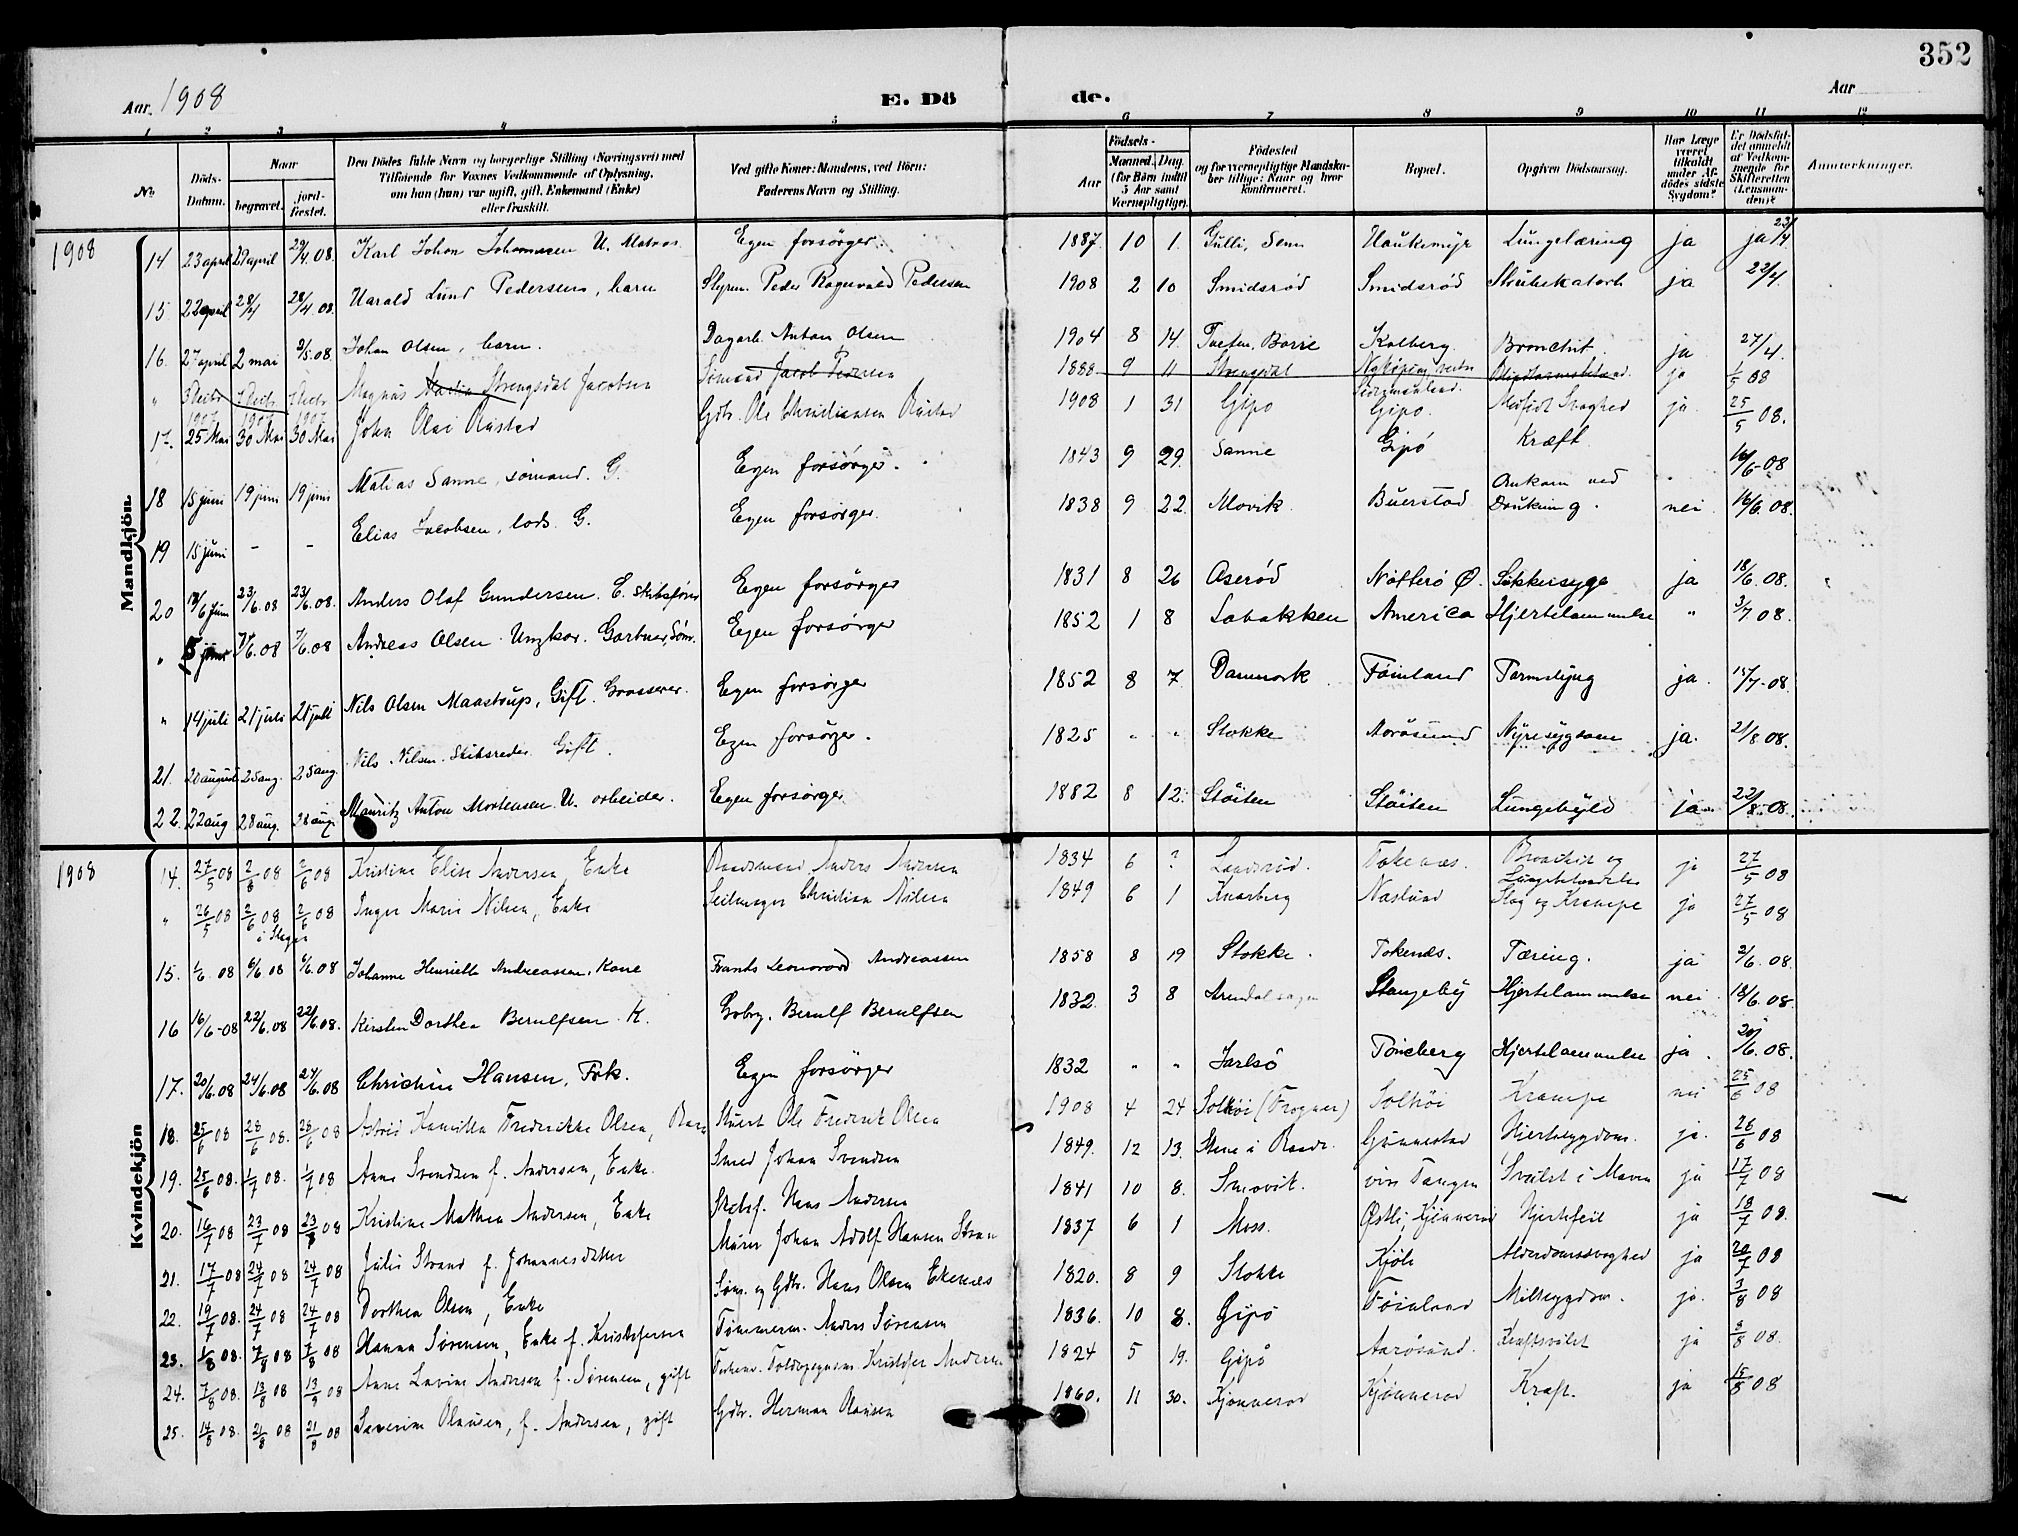 352
Aar. 1908 E. Dö de. Aar
1 2 3 4 5 6 7 8 9 10 11 12
No. Döds-Datum. Naar begravet. jord-fæstet. Den Dödes fulde Navn og borgerlige Stilling (Næringsvei) med Tilföiende for Voxnes Vedkommende af Oplysning, om han (hun) var ugift, gift, Enkemand (Enke) eller fraskilt. Ved gifte Koner: Mandens, ved Börn: Faderens Navn og Stilling. Födsels- Aar Maaned. Dag. (for Börn indtil 5 Aar samt Værnepligtige). Födested og for værnepligtige Mandskaber tillige: Naar og hvor konfirmeret. Bopæl. Opgiven Dödsaarsag. Har Læge været tilkaldt under Afdödes sidste Sygdom? Er Dödsfaldet anmeldt af Vedkommende for Skifteretten (Lensmanden)? Anmærkninger.
Mandkjön
1908 14 23 april 29 april 29/4. 08. Karl Johan Johannesen U. Matros Egen forsörger. 1887. 10 1. Gulli, Sem Haukemyr Lungetæring ja ja 23/4
15 22 april 28/4 28/4. 08. Harald Lund Pedersen, barn Styrm. Peder Ragnvald Pedersen 1908 2 10 Smidsrød Smidsrød Strubekatarh ja 22/4.
16. 27 april 2 mai 2/5. 08. Johan Olsen, barn. Dagarb. Anton Olsen 1904 8 14. Tveten, Borre Kolberg. Bronchit. ja 27/4.
" 3 Decbr 1907 7 Decbr 1907 7 Decbr 1907 Magnus Strengsdal Jacobsen Sömand Jacob 1888 9 11 ja 1/5 08
17. 25 Mai 30 Mai 30 Mai John Olai Rustad Gdbr. Ole Christiansen Rustad 1908 1 31 Gipø Gipø. Medfødt Svaghed ja. 25/5 08.
18 15 juni 19 juni 19 juni Matias Sanne, sömand. G. Egen forsörger. 1843 9 29. Sanne Gipö Kræft. " 16/6-08
19 15 juni - - Elias Jacobsen, lods. G. Egen forsörger. 1838 9 22. Movik. Buerstad Omkom ved Drukning. nei. 16/6. 08.
20 juni 23/6. 08 23/6. 08. Anders Olaf Gundersen. E. skibsförer Egen forsörger 1831 8 26 Aserød Nötterö Ø. Sukkersyge ja 18/6. 08.
" 5 juni 7/6. 08 7/6. 08 Andreas Olsen. Ungkar. Gartner, Söm. Egen forsörger 1852 1 8 Labakken America Hjertelammelse " 3/7 08.
" 14 juli 21 juli 21 juli Nils Olsen Maastrup, Gift. Grosserer. Egen forsörger 1852 8 7. Danmark Föinland Tarmslyng ja. 15/7-08.
21. 20 august 25 aug. 25 aug. Nils Nilsen. Skibsreder. Gift. Egen forsörger. 1825 " " Stokke Aarösund Nyresygdom ja. 21/8 08.
22. 22 aug 28 aug. 28 aug. Mauritz Anton Mortensen. U. arbeider. Egen forsörger. 1882 8 12. Stöiten Stöiten Lungebyld ja 22/8-08.
Kvindekjön
1908 14. 27/5 08 2/6 08 2/6 08 Kristine Elise Andersen, Enke Anders Andersen 1834 6 ? Tokenæs. Bronchit og Lungebetændelse ja 27/5 08
" 26/5 08 2/6 08 i Slagen 2/6 08 Inger Marie Nilsen, Enke Seilmager Christian Nilsen 1849 6 1 Knarberg Næslund Slag og Krampe ja 27/5 08
15. 1/6. 08 6/6. 08 6/6. 08 Johanne Henriette Andreassen, Kone Frants Leonard Andreassen 1858 8 19 Stokke. Tokenæs. Tæring. ja 2/6. 08.
16 16/6-08 22/6. 08 22/6. 08. Kirsten Dorthea Berulfsen. K. Gbrg. Berulf Berulfsen 1832. 3 8 Arendal Stangeby Hjertelammelse nei. 18/6. 08.
17. 20/6. 08 24/6. 08 24/6. 08 Christine Hansen, Frk. Egen forsörger 1832 " " Jarlsö Tönsberg Hjertelammelse ja. 20/6. 08.
18. 25/6 08 28/6 08. 28/6 08 Astrid Kamilla Frederikke Olsen, Barn Stuert Ole Fredrik Olsen 1908 4 24 Solhöi (Frogner) Solhöi Krampe nei 25/6 08
19. 25/6 08. 1/7 08. 1/7 08 Anne Svendsen f. Andersen, Enke. Smed Johan Svendsen 1849. 12 13. Gunnestad Hjertesygdom. ja. 26/6 08
20. 16/7 08 23/7 08 23/7 08 Kristine Mathea Andersen, Enke Skibsf. Hans Andersen 1841 10 8. Smørvik. Tangen Svulst i Maven ja 17/7 08
21. 17/7 08 24/7 08 24/7 08 Julie Strand f. Johannesdatter Murer Johan Adolf Hansen Strand 1837 6 1 Moss. Østli, Kjönneröd Hjertefeil ja 18/7 08.
22. 19/7 08. 24/7 08 24/7 08 Dorthea Olsen, Enke Söm. og Gdbr. Hans Olsen Ekenæs 1820. 8 9 Stokke Kjöle Alderdomssvaghed ja 20/7 08
23. 1/8 08. 7/8 08 7/8 08 Hanna Sørensen, Enke f. Kristofersen Tömmerm. Anders Sørensen 1836. 10 8. Gipö Föinland Miltsygdom. ja. 3/8 08
24. 7/8 08. 13/8 08 13/8 08 Anne Lavine Andersen f. Sørensen, gift Kristofer Andersen 1824 5 19. Gipö Aarösund. Kræftsvulst ja 8/8 08.
25. 14/8 08. 21/8 08 21/8 08 Severine Olausen, f. Andersen, gift Gdbr. Herman Olausen 1860. 11 30. Kjönneröd Kjönneröd Kræft. ja 15/8 08